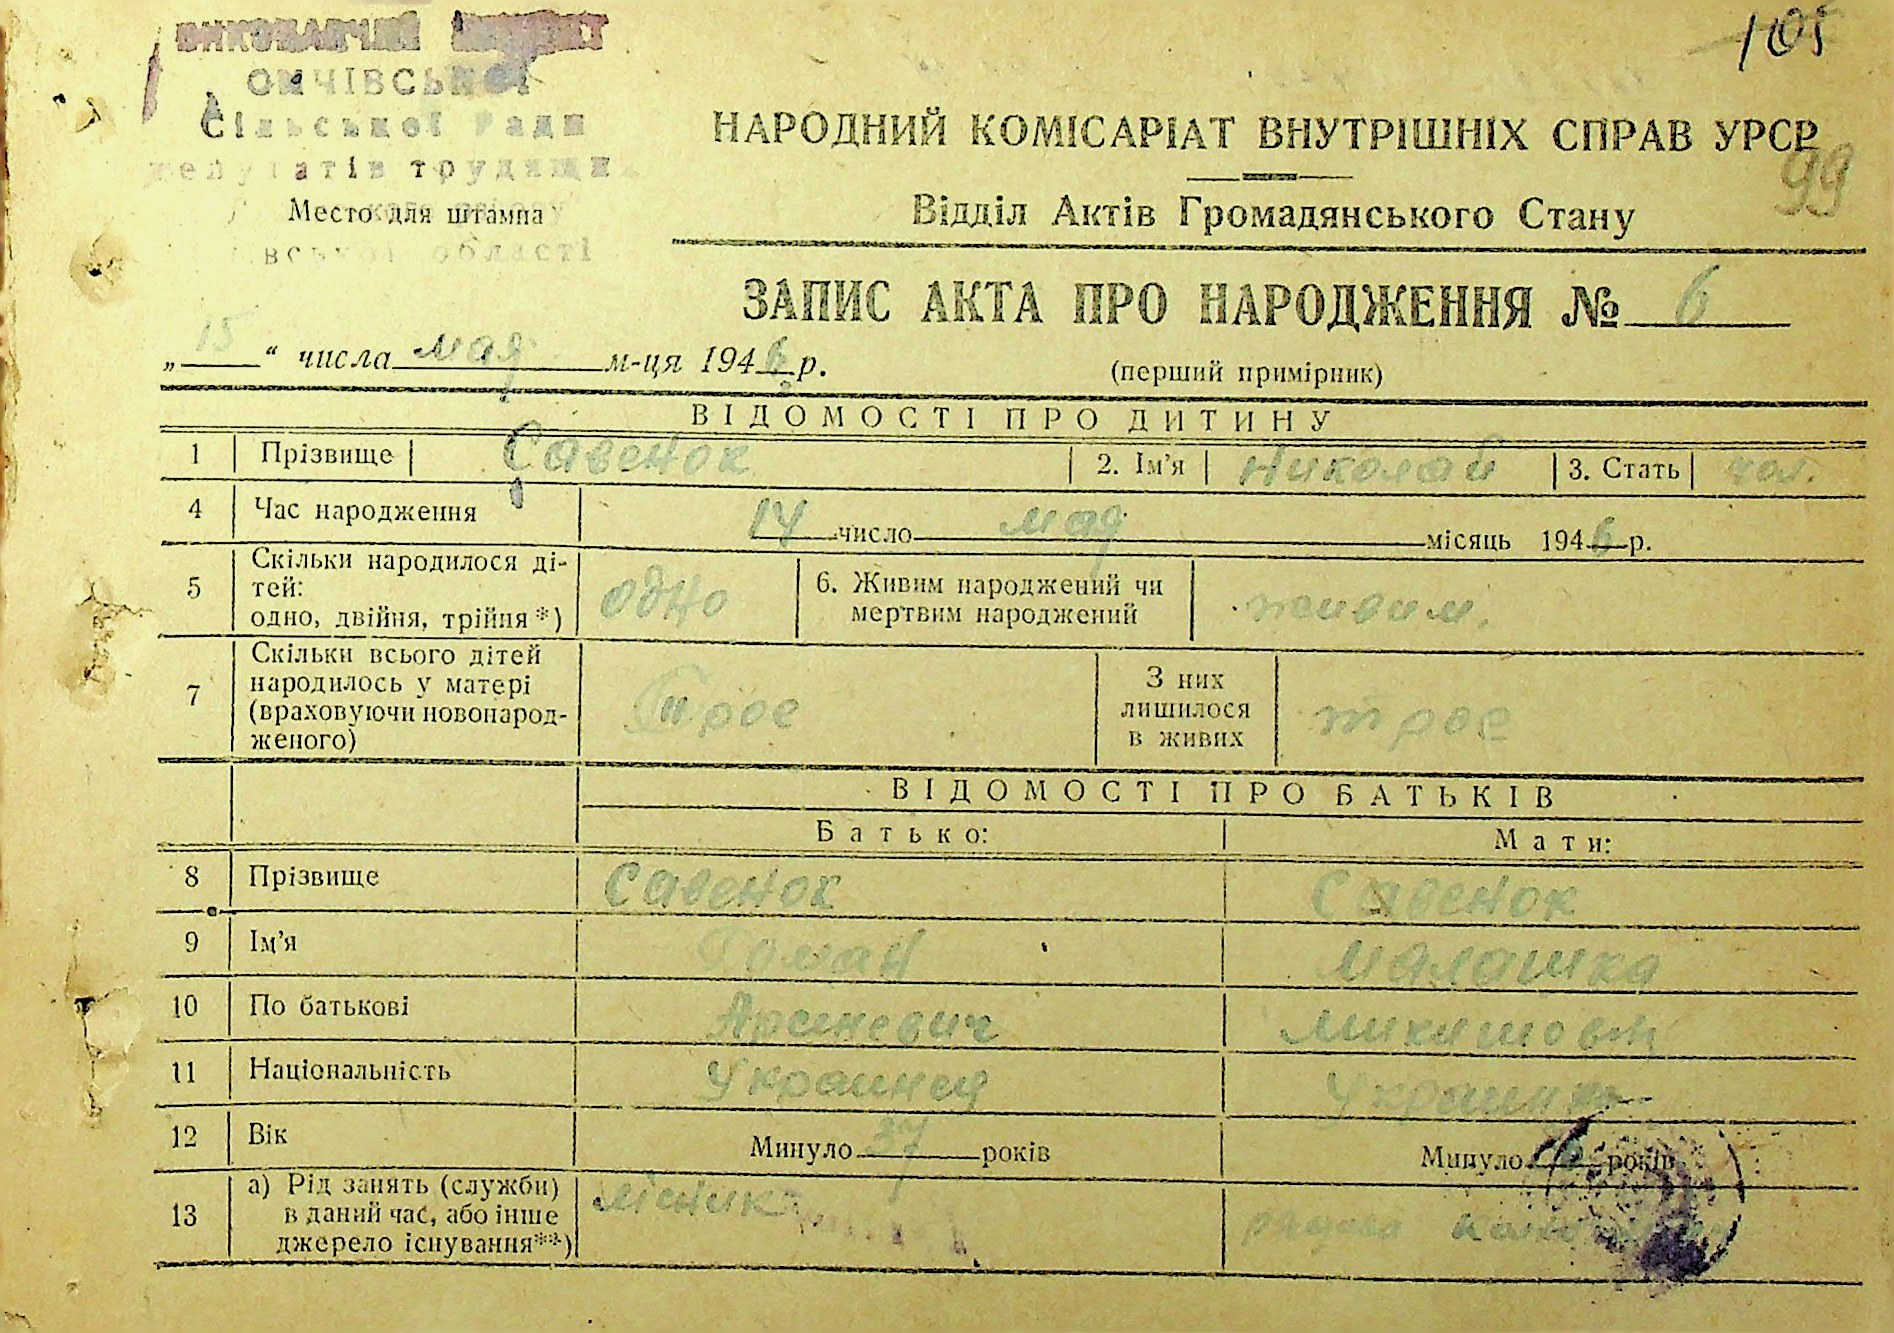 105
ВИКОНАВЧИЙ КОМІТЕТ
Сільської Ради
депутатів трудящих
Место для штампа
області
НАРОДНИЙ КОМІСАРІАТ ВНУТРІШНІХ СПРАВ УРСР
99
Відділ Актів Громадянського Стану
ЗАПИС АКТА ПРО НАРОДЖЕННЯ № 6
„15“ числа мая м-ця 1946 р.
(перший примірник)
ВІДОМОСТІ ПРО ДИТИНУ
1 Прізвище Савенок 2. Ім'я Николай 3. Стать чол.
4 Час народження 14 число мая місяць 1946 р.
5 Скільки народилося ді-
тей:
одно, двійня, трійня *) одно
6. Живим народжений чи
мертвим народжений живим.
7 Скільки всього дітей
народилось у матері
(враховуючи новонарод-
женого) Трое
З них
лишилося
в живих трое
ВІДОМОСТІ ПРО БАТЬКІВ
Батько: Мати:
8 Прізвище Савенок Савенок
9 Ім'я Роман Малашка
10 По батькові
11 Національність Украинец Украинка
12 Вік Минуло років Минуло років
13 а) Рід занять (служби)
в даний час, або інше
джерело існування**) лісник